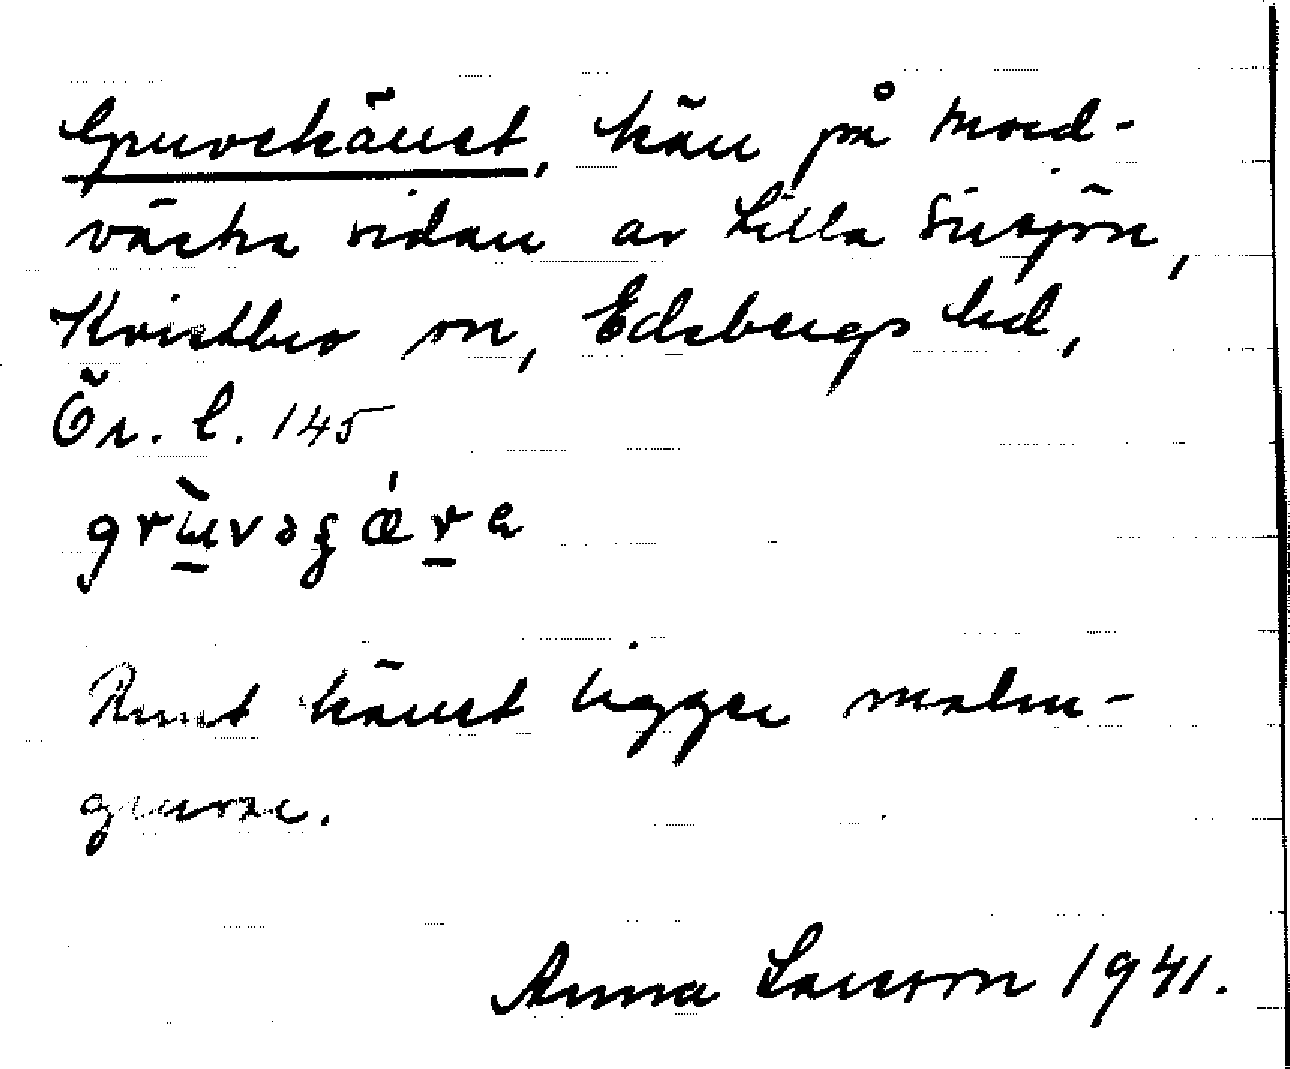 Gruvekärret, kärr på nord-
västra sidan av Lilla Sirsjön,
Kvistbro sn, Edsbergs hd,
Ör. l. 145

Runt kärret ligger malm-
gruvor.
Anna Larsson 1941.